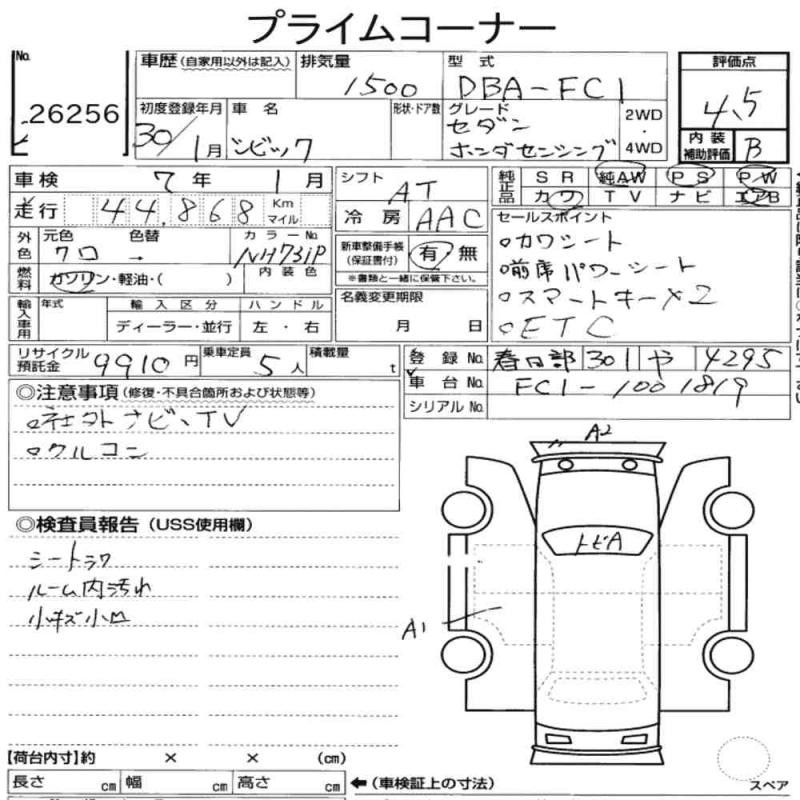 プライムコーナー
No. 26256
車歴 (自家用以外は記入) 排気量 1500 型式 DBA-FC1 評価点 4.5
初度登録年月 30/1月 車名 シビック 形状・ドア数 グレード セダン ホンダセンシング 2WD・4WD 内装補助評価 B
車検 7年 1月 シフト AT 純正品 SR 純AW PS PW
走行 44,868 Km マイル 冷房 AAC カワ TV ナビ エアB
外色 元色 クロ 色替 → カラーNo. NH731P 新車整備手帳 (保証書付) 有 無 ※書類と一緒に保管下さい。
セールスポイント
○カワシート
○前席パワーシート
○スマートキー×2
○ETC
燃料 ガソリン・軽油・( ) 内装色 名義変更期限 月 日
輸入車用 年式 輸入区分 ディーラー・並行 ハンドル 左・右
リサイクル預託金 9910円 乗車定員 5人 積載量 t
登録No. 春日部 301 や 4295
車台No. FC1-1001819
シリアルNo.
◎注意事項 (修復・不具合箇所および状態等)
○社外ナビ、TV
○クルコン
◎検査員報告 (USS使用欄)
シートラク
ルーム内汚れ
小キズ小凹
A2
トビA
A1
【荷台内寸】約 × × (cm)
長さ cm 幅 cm 高さ cm ←(車検証上の寸法)
スペア